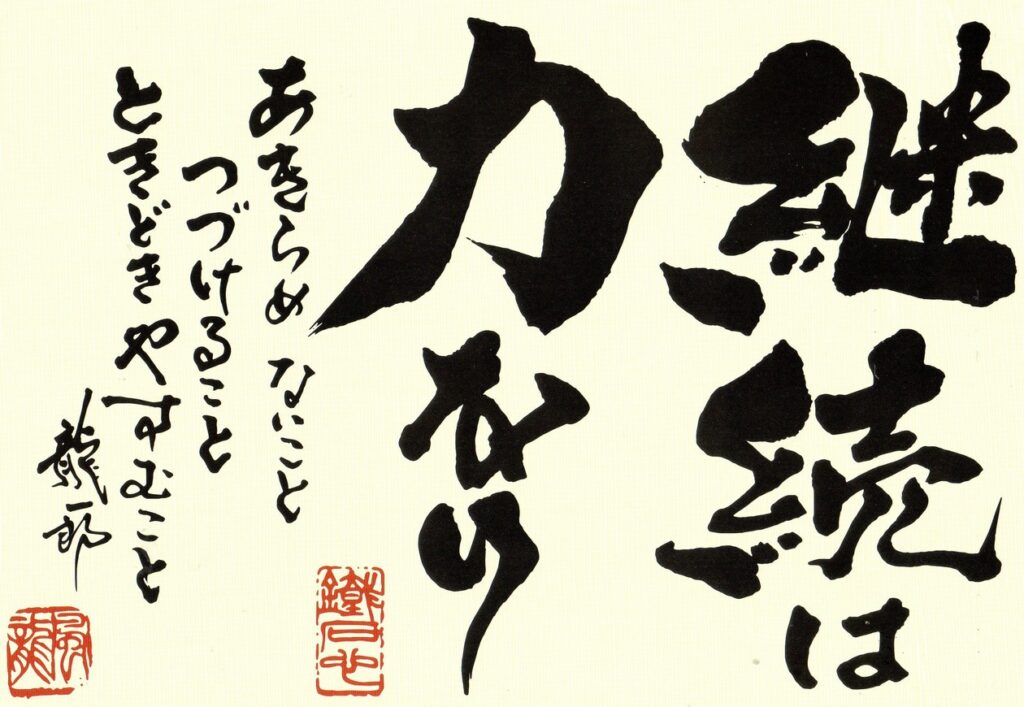 継続は
力なり
あきらめないこと
つづけること
ときどきやすむこと
龍一郎